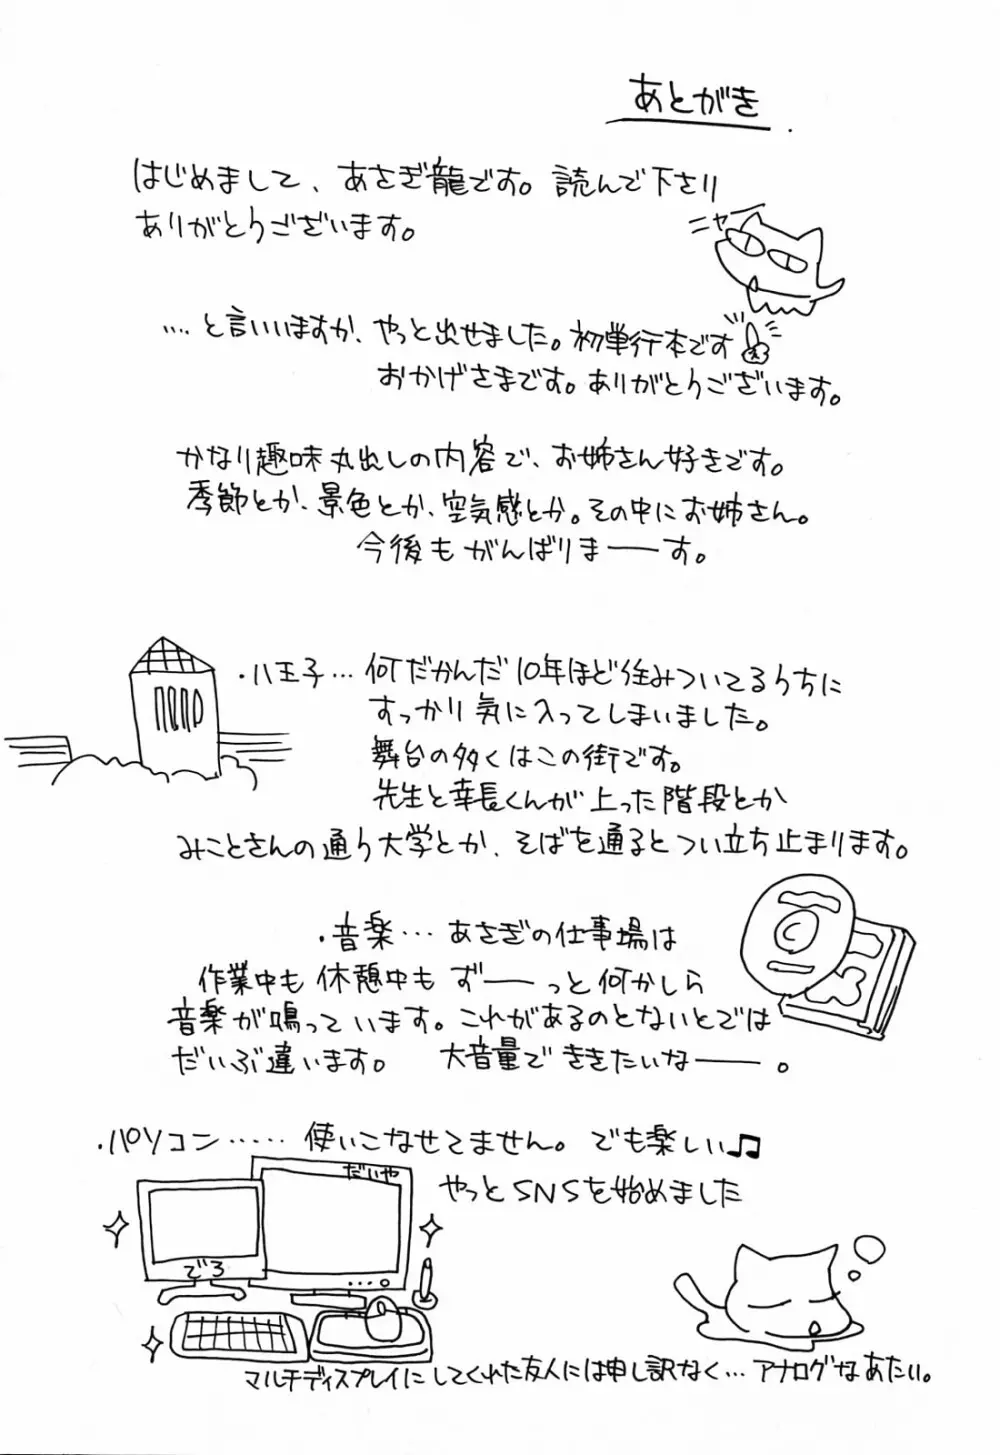 あとがき
はじめまして、あさぎ龍です。読んで下さり
ありがとうございます。
ニャー
‥‥と言いますか、やっと出せました。初単行本です
おかげさまです。ありがとうございます。
かなり趣味丸出しの内容で、お姉さん好きです。
季節とか、景色とか、空気感とか。その中にお姉さん。
今後もがんばりまーーす。
・八王子…何だかんだ10年ほど住みついてるうちに
すっかり気に入ってしまいました。
舞台の多くはこの街です。
先生と幸長くんが上った階段とか
みことさんの通う大学とか、そばを通るとつい立ち止まります。
・音楽…あさぎの仕事場は
作業中も休憩中もずーーっと何かしら
音楽が鳴っています。これがあるのとないとでは
だいぶ違います。 大音量でききたいなーー。
・パソコン……使いこなせてません。でも楽しい♫
だいや
やっとSNSを始めました
でろ
マルチディスプレイにしてくれた友人には申し訳なく…アナログなあたい。